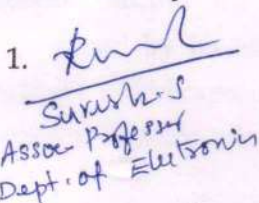 1.
Suresh. S
Assoc Professor
Dept. of Electronics